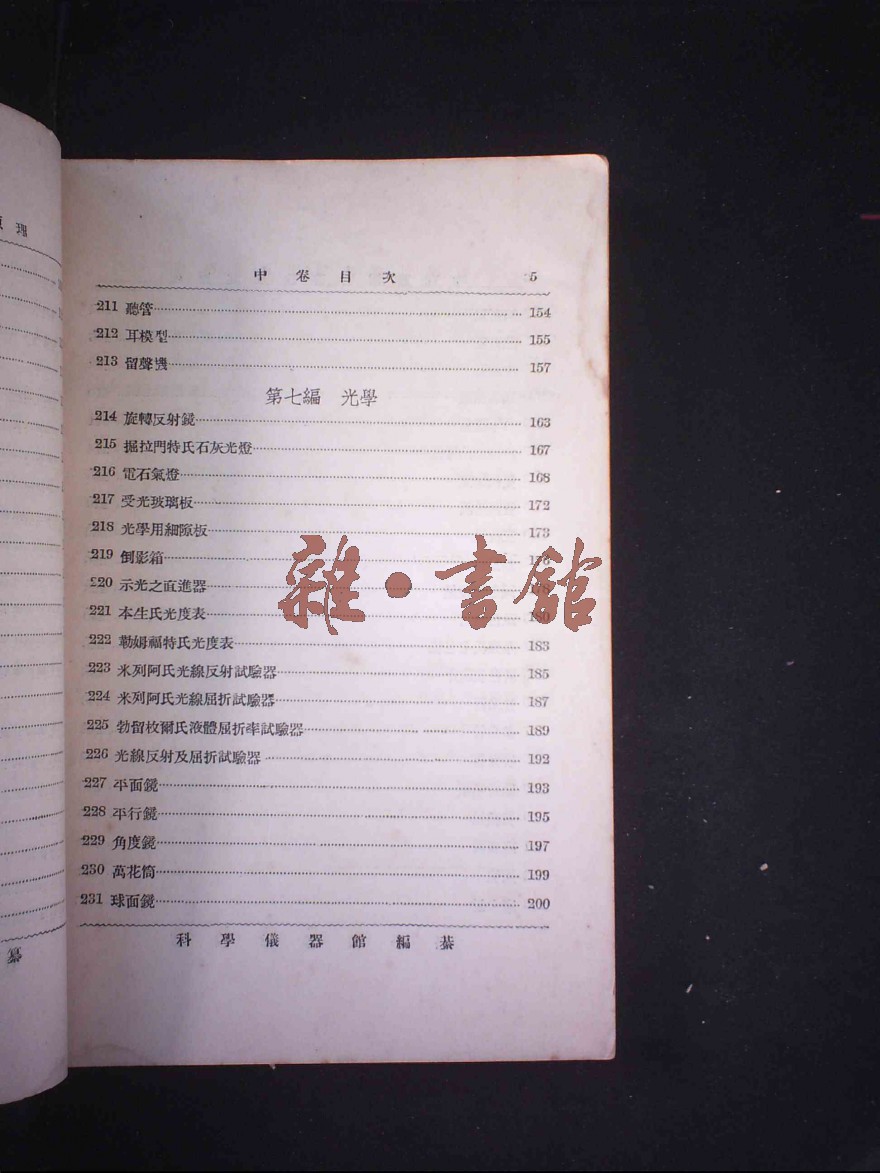 理
中卷目次 5
211 聽管 154
212 耳模型 155
213 留聲機 157
第七編 光學
214 旋轉反射鏡 163
215 掘拉門特氏石灰光燈 167
216 電石氣燈 168
217 受光玻璃板 172
218 光學用細隙板 173
219 倒影箱
220 示光之直進器
221 本生氏光度表 180
222 勒姆福特氏光度表 183
223 米列阿氏光線反射試驗器 185
224 米列阿氏光線屈折試驗器 187
225 勃留枚爾氏液體屈折率試驗器 189
226 光線反射及屈折試驗器 192
227 平面鏡 193
228 平行鏡 195
229 角度鏡 197
230 萬花筒 199
231 球面鏡 200
科學儀器館編纂
雜·書館